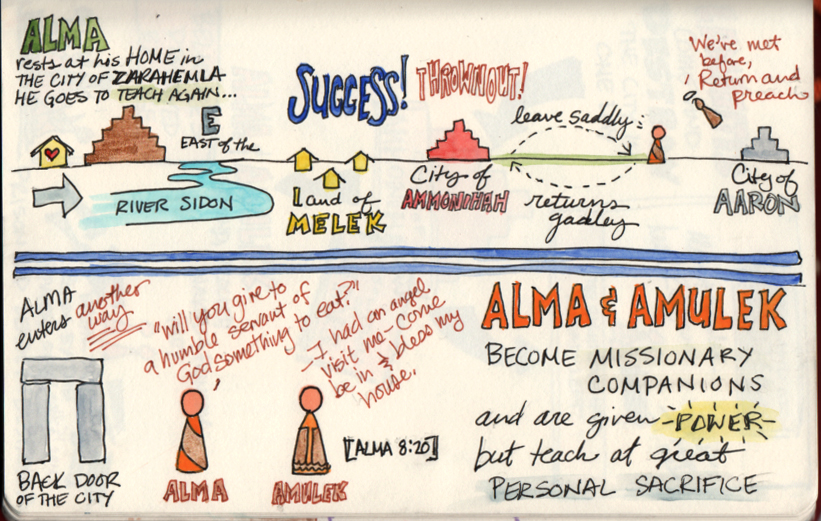 ALMA
rests at his HOME in
THE CITY OF ZARAHEMLA
HE GOES TO TEACH AGAIN...
E
EAST of the
RIVER SIDON
SUCCESS!
Land of
MELEK
THROWN OUT!
City of
AMMONIHAH
leave saddly
returns
gadley
We've met
before,
Return and
preach
City of
AARON
ALMA
enters another
way
BACK DOOR
OF THE CITY
"Will you give to
a humble servant of
God something to eat?"
ALMA
-I had an angel
visit me-come
be in & bless my
house.
AMULEK
[ALMA 8:20]
ALMA & AMULEK
BECOME MISSIONARY
COMPANIONS
and are given -POWER-
but teach at great
PERSONAL SACRIFICE